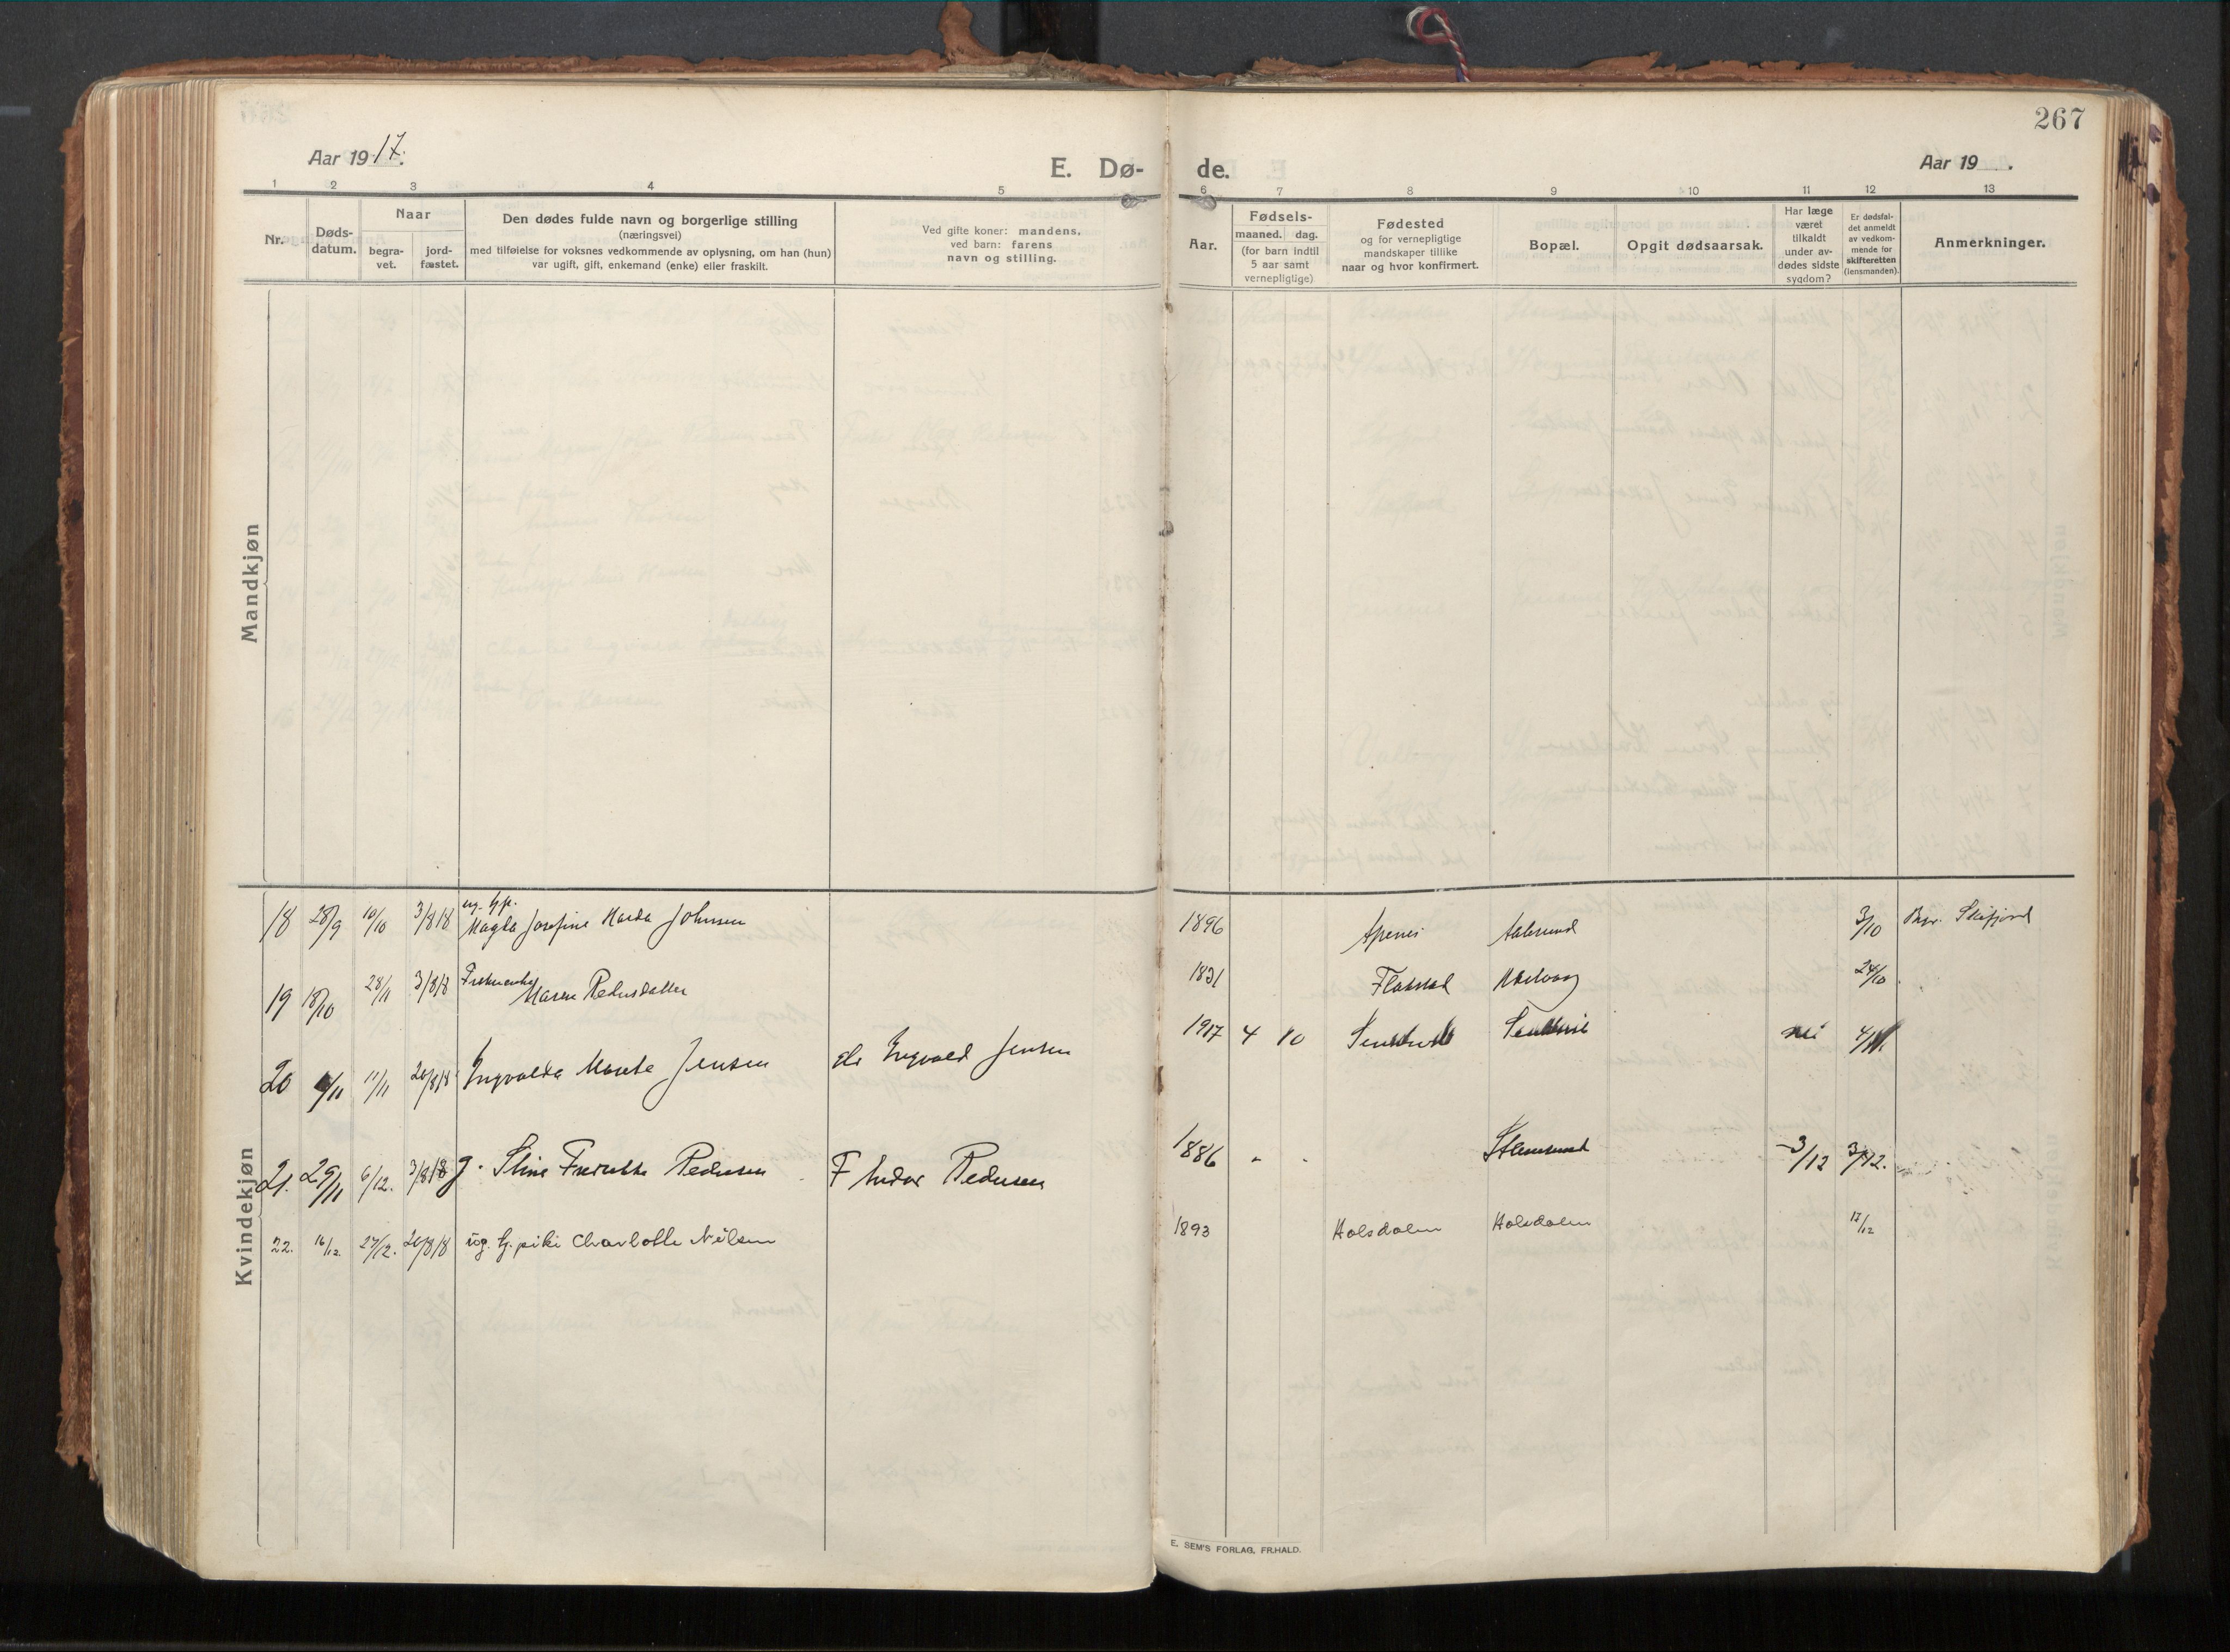 267
Aar 1917.
E. Dø-
de.
Aar 19 .
1 2 3 4 5 6 7 8 9 10 11 12 13
Nr.
Døds-
datum.
Naar
begra-
vet.
jord-
fæstet.
Den dødes fulde navn og borgerlige stilling
(næringsvei)
med tilføielse for voksnes vedkommende av oplysning, om han (hun)
var ugift, gift, enkemand (enke) eller fraskilt.
Ved gifte koner: mandens,
ved barn: farens
navn og stilling.
Aar.
Fødsels-
maaned. dag.
(for barn indtil
5 aar samt
vernepligtige)
Fødested
og for vernepligtige
mandskaper tillike
naar og hvor konfirmert.
Bopæl.
Opgit dødsaarsak.
Har læge
været
tilkaldt
under av-
dødes sidste
sygdom?
Er dødsfal-
det anmeldt
av vedkom-
mende for
skifteretten
(lensmanden).
Anmerkninger.
Mandkjøn
Kvindekjøn
18 28/9 10/10 3/8 18 Magda Josefine Johnsen 1896 3/10
19 18/10 28/11 3/8 18 Maren 1831 Flakstad 24/10
20 11/11 20/8 18 Ingvalda Jensen Ingvald Jensen 1917 4 10 nei
21. 29/11 6/12. 3/8 18 g. Stine Pedersen F Pedersen 1886 - - 3/12
22. 16/12. 27/12. 20/8 18 ug. tj. pike Charlotte Nilsen 1893 Holsdalen Holsdalen 17/12
E. SEM'S FORLAG, FR.HALD.